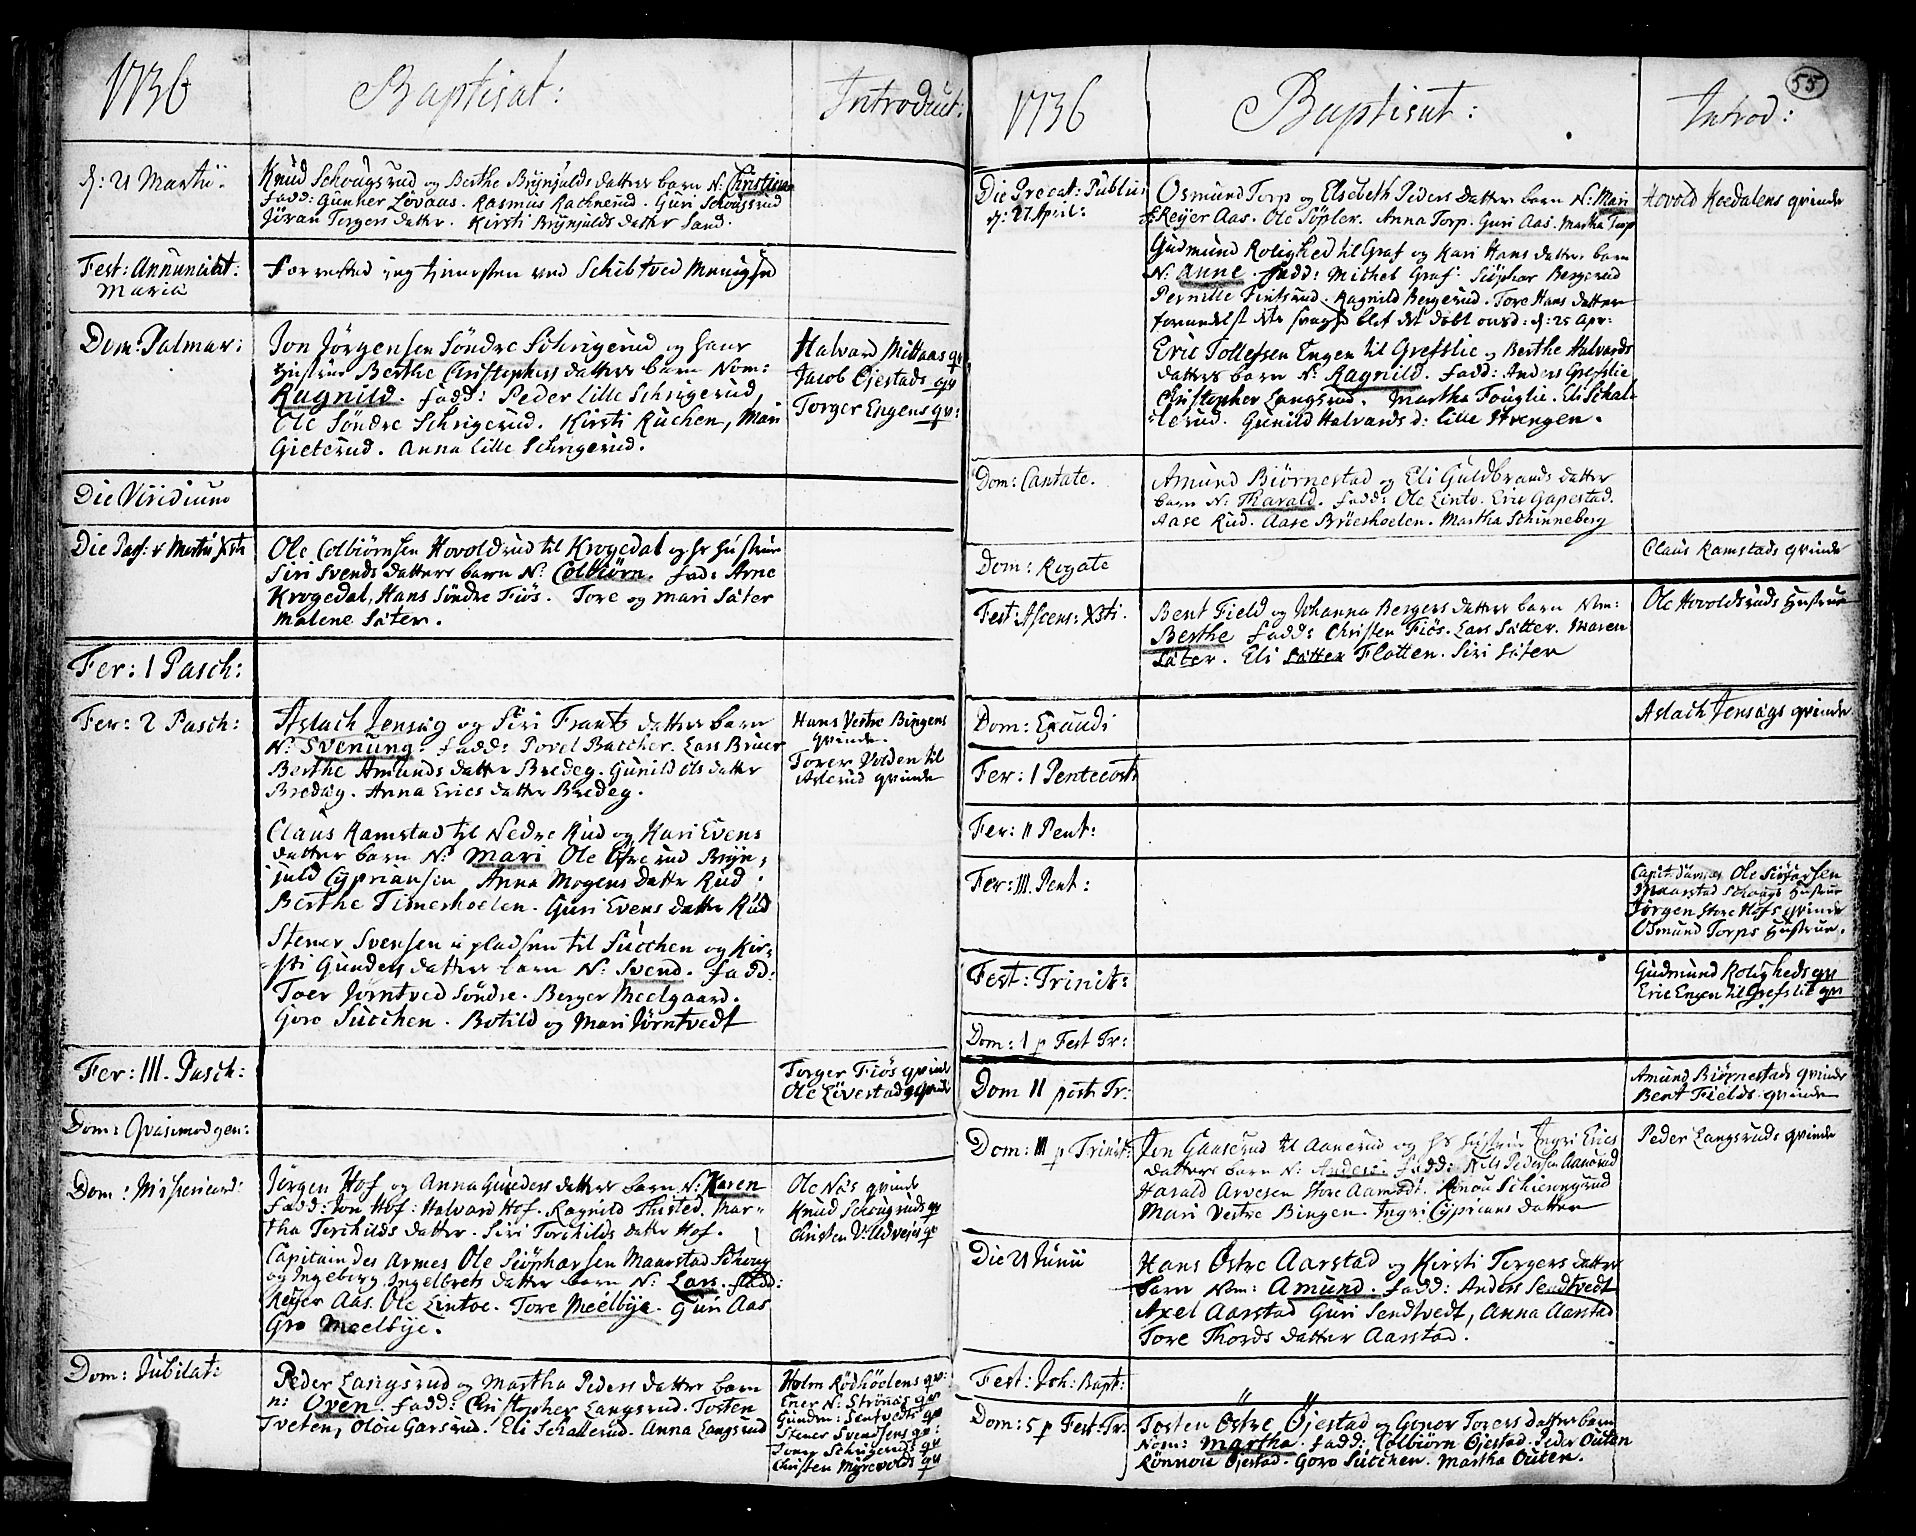 1736
Baptisat:
Introduct:
d: 21 Martii.
Knud Schougsrud og Berthe Brynjulds datters barn N: Christian
fadd: Gunner Lövaas. Rasmus Rachnerud. Guri Schougsrud
Jöran Torgers datter. Kirsti Brynjulds datter Sand.
Fest: Annunciat:
Mariæ
Forretted jeg tjenesten ved Schibtved Menighed
Dom: Palmar:
Jon Jörgensen Söndre Schrigerud og hans
Hustrue Berthe Christophers datters barn Nom:
Ragnild. fadd: Peder Lille Schrigerud,
Ole Söndre Schrigerud. Kirsti Ruchen, Mari
Gieterud. Anna Lille Schrigerud.
Halvard Mittaas qv
Jacob Öjestads qv
Torger Engens qv:
Die Viridium
Die Pass: & Mortis Xsti
Ole Colbiörnsen Hovoldrud til Krogedal og hs Hustrue
Siri Svends datters barn N: Colbiörn. fad: Arne
Krogedal, Hans Söndre Fiös. Tore og Mari Säter
Malene Säter.
Fer: 1 Pasch:
Fer: 2 Pasch:
Aslach Jensög og Siri Frants datters barn
N: Svenung. fadd: Povel Batcher. Lars Bruer
Berthe Amunds datter Bredeg. Gunild Ols datter
Bredög. Anna Erics datter Bredeg.
Hans Vestre Bingens
qvinde.
Torer Volden til
Aslerud qvinde
Claus Ramstad til Nedre Rud og Kari Evens
datters barn N: Mari Ole Öfre rud Bryn-
juld Cypriansen Anna Mogens Datter Rud.
Berthe Timerhoelen. Guri Evens datter Rud
Stener Svensen i pladsen til Sutchen og Kir-
sti Gunders datters barn N: Svend. fadd:
Toer Jörntved Söndre. Berger Meelgaard.
Goro Sutchen. Botild og Mari Jörntvedt
Fer: III. Pasch:
Torger Fiös qvinde
Ole Lövestads qvinde
Dom: Qvasimodgen:
Dom: Misericord:
Jörgen Hof og Anna Gunders datters barn N: Karen
fadd: Jon Hof: Halvard Hof. Ragnild Thisted. Mar-
tha Torchilds datter. Siri Torchilds datter Hof.
Capitain des Armes Ole Siöpharsen Maarstad Schoug
og Ingeborg Ingelbrets datters barn N: Lars. fadd:
Reyer Aas. Ole Lintoe. Tore Meelbye. Guri Aas
Gro Meelbye.
Ole Näs qvinde
Knud Schougruds qv
Christen V: Udvejes qv
Dom: Jubilate
Peder Langsrud og Martha Peders datters barn
n: Oven. fadd: Christopher Langsrud. Tosten
Tveten, Olöu Garsrud. Eli Schallerud. Anna Langsrud
Holm Rödhöelens qv:
Ener N: Strömös qv
Gunder Sentvedts qv
Stener Svendsens qv:
Joen Schrigeruds qv
Christen Myrevolds qv
55
1736
Baptisat:
Introd:
Die Precat: Publice
d: 27 April:
Osmund Torp og Elsebeth Peders datters barn N: Mari
f: Reyer Aas. Ole Töpler. Anna Torp. Guri Aas. Martha Torp
Gudmund Rolighed til Graf og Kari Hans datters barn
N: Anne. fadd: Michel Graf. Siöphar Bergerud
Pernille Fintsrud. Ragnild Bergerud. Tore Hans datter
formedelst dets svaghed blef det döbt onsd: d: 25 Apr:
Eric Tollefsen Engen til Grefslie og Berthe Halvards
datters barn N: Ragnild. fadd: Anders Grefslie
Christopher Langsrud. Martha Fouglie. Eli Schal-
lerud. Gunild Halvards d: Lille Strengen.
Hovold Keedalens qvinde
Dom: Cantate.
Amund Biörnestad og Eli Guldbrands datter
barn N: Tharald. fadd: Ole Linto. Eric Gapestad.
Aase Rud. Aase Brüeshoelen. Martha Schinneberg
Dom: Rogate
Claus Ramstads qvinde
Fest: Ascens: Xsti.
Bent Field og Johanna Bergers datters barn Nom:
Berthe fadd: Christen Fiös. Lars Sätter. Maren
Säter. Eli Sätter Flotten. Siri Säter
Ole Hovoldsruds Hustrue
Dom: Exaudi
Aslach Jensögs qvinde
Fer: 1 Pentecost
Fer: II Pent:
Fer: III. Pent:
Capit: d'armes Ole Siöfarsen
Maarstad Schougs Hustrue
Jörgen store Hofs qvinde
Osmund Torps Hustrue.
Fest: Trinit:
Gudmund Roligheds qv
Eric Engen til Grefslie qv
Dom: 1 p Fest Tr:
Dom II post Tr:
Amund Biörnestads qvinde
Bent Fields qvinde
Dom: III p Trinit:
Jon Gaaserud til Aanerud og hs Hustrue Ingri Erics
datters barn N: Anders. fadd: Nils Pedersen Aanerud
Harald Arvesen store Aamodt. Schierengrud
Mari Vestre Bingen. Ingri Cyprians datter
Peder Langsruds qvinde
Die 21 Junii
Hans Östre Aarstad og Kirsti Torgers datter
barn Nom: Amund. fadd: Anders Sendtvedt
Axel Aarstad Guri Sendtvedt, Anna Aarstad
Tore Thords datter Aarstad.
Fest: Joh: Bapt:
Dom: 5 p Fest: Tr:
Tosten Östre Öjestad og Gonor Torers datters barn
Nom: Martha. fadd: Colbiörn Öjestad. Peder Outen
Rönnou Öjestad. Goro Sutchen. Martha Outen.